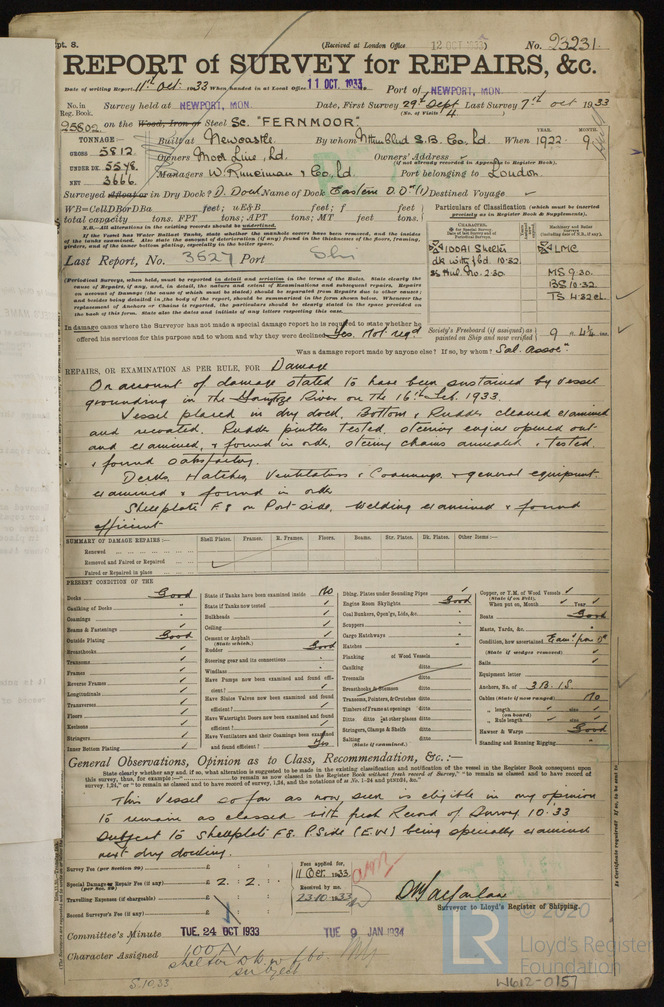 Rpt. 8.
(Received at London Office 12 OCT 1933)
No. 23231.
REPORT of SURVEY for REPAIRS, &c.
Date of writing Report 11th Oct. 1933 When handed in at Local Office 11 OCT. 1933. Port of NEWPORT, MON.
No. in Reg. Book. Survey held at NEWPORT, MON. Date, First Survey 29th Sept Last Survey 7th Oct 1933
(No. of Visits 4)
25802 on the Wood, Iron or Steel Sc. "FERNMOOR"
TONNAGE
GROSS 5812
UNDER DK. 5548.
NET 3666.
Built at Newcastle By whom Nthumblnd S.B. Co. Ld. When 1922 YEAR. 9 MONTH.
Owners Moor Line, Ld. Owners' Address
(if not already recorded in Appendix to Register Book).
Managers W. Runciman & Co, Ld Port belonging to London.
Surveyed Afloat or in Dry Dock? D. Dock Name of Dock Eastern D.D. (1) Destined Voyage
WB=CellDBorDBa feet; uE&B feet; f feet
total capacity tons. FPT tons; APT tons; MT feet tons.
N.B.—All alterations in the existing records should be underlined.
If the Vessel has Water Ballast Tanks, state whether the manhole covers have been removed, and the insides of the tanks examined. Also state the amount of deterioration (if any) found in the thickness of the floors, framing, girders, and of the inner bottom plating, especially in the boiler space.
Last Report, No. 3627 Port Shi
Particulars of Classification (which must be inserted precisely as in Register Book & Supplements).
CHARACTER.
100A1 Shelter
dk with fbd. 10.32
SS Hul. No. 2.30
LMC
MS 9.30
BS 10.32
TS 4.32 CL
(Periodical Surveys, when held, must be reported in detail and seriatim in the terms of the Rules. State clearly the cause of Repairs, if any, and, in detail, the nature and extent of Examinations and subsequent repairs. Repairs on account of Damage (the cause of which must be stated) should be separated from Repairs due to other causes; and besides being detailed in the body of the report, should be summarized in the form shown below. Whenever the replacement of Anchors or Chains is reported, the particulars should be clearly stated in the space provided on the back of this form. State also the dates and initials of any letters respecting this case.
In damage cases where the Surveyor has not made a special damage report he is required to state whether he offered his services for this purpose and to whom and why they were declined Yes. Not reqd
Society's Freeboard (if assigned) as painted on Ship and now verified 9 ft. 4½ ins.
Was a damage report made by anyone else? If so, by whom? Sal. Assoc.
REPAIRS, OR EXAMINATION AS PER RULE, FOR Damage
On account of damage stated to have been sustained by vessel
grounding in the Yangtze River on the 16th Feb. 1933.
Vessel placed in dry dock. Bottom & Rudder cleaned examined
and recoated. Rudder pintles tested, steering engine opened out
and examined, & found in order, steering chains annealed & tested,
& found satisfactory.
Decks, Hatches, Ventilators & Coamings & general equipment
examined & found in order
Shellplate F8 on Port side, welding examined & found
efficient
SUMMARY OF DAMAGE REPAIRS :— Shell Plates. Frames. R. Frames. Floors. Beams. Str. Plates. Dk. Plates. Other Items :—
Renewed
Removed and Faired or Repaired
Faired or Repaired in place
PRESENT CONDITION OF THE
Decks Good
Caulking of Decks "
Coamings "
Beams & Fastenings
Outside Plating Good
Breasthooks
Transoms
Frames
Reverse Frames
Longitudinals
Transverses
Floors
Keelsons
Stringers
Inner Bottom Plating
State if Tanks have been examined inside No
State if Tanks now tested
Bulkheads
Ceiling
Cement or Asphalt
(State which.)
Rudder Good
Steering gear and its connections "
Windlass "
Have Pumps now been examined and found efficient?
Have Sluice Valves now been examined and found efficient?
Have Watertight Doors now been examined and found efficient?
Have Ventilators and their Coamings been examined and found efficient? Yes
Dblng. Plates under Sounding Pipes
Engine Room Skylights Good
Coal Bunkers, Open'gs, Lids, &c. "
Scuppers "
Cargo Hatchways "
Hatches "
Planking of Wood Vessels
Caulking ditto
Treenails ditto
Breasthooks & Stemson ditto
Transoms, Pointers, & Crutches ditto
Timbers of Frame at openings ditto
Ditto ditto at other places ditto
Stringers, Clamps & Shelfs ditto
Salting ditto
(State if examined.)
Copper, or Y.M. of Wood Vessels
(State if on Felt).
When put on, Month Year
Boats Good
Masts, Yards, &c. "
Condition, how ascertained
(State if wedges removed)
Sails
Equipment letter
Anchors, No. of 3B. 1S.
Cables (State if now ranged) No
" length size
(on board)
" Rule length size
Hawser & Warps Good
Standing and Running Rigging "
General Observations, Opinion as to Class, Recommendation, &c. :—
State clearly whether any and, if so, what alteration is suggested to be made in the existing classification and notification of the vessel in the Register Book consequent upon this survey, thus, for example :—
This vessel so far as now seen is eligible in my opinion
to remain as classed with fresh Record of Survey 10.33
Subject to Shellplate F8. P. Side (E.W.) being specially examined
next dry docking.
Survey Fee (per Section 29) £ : :
Special Damage or Repair Fee (if any) (per Sec. 29) £ 2 : 2 :
Travelling Expenses (if chargeable) £ : :
Second Surveyor's Fee (if any) £ : :
Fees applied for, 11 Oct. 1933
Received by me, 23.10.1933
D Macfarlane
Surveyor to Lloyd's Register of Shipping.
Committee's Minute TUE. 24 OCT 1933 TUE 9 JAN 1934
Character Assigned 100A1
shelter dk w fbd
subject
5.10.33
© 2020
LR
Lloyd's Register
Foundation
W612-0157